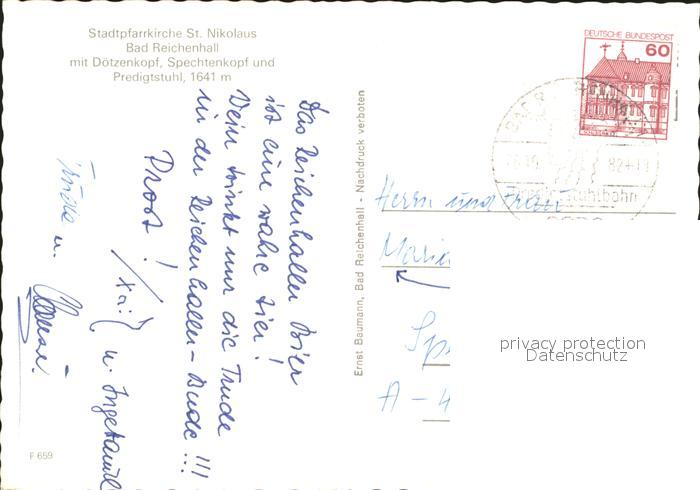 Stadtpfarrkirche St. Nikolaus
Bad Reichenhall
mit Dötzenkopf, Spechtenkopf und
Predigtstuhl, 1641 m
Das Reichenhaller Bier
ist eine wahre Zier!
Wein trinkt nur die Trude
in der Reichenhaller-Bude!!!
Prost!
u. Ingetraud
Trude u.
F 659
Ernst Baumann, Bad Reichenhall - Nachdruck verboten
DEUTSCHE BUNDESPOST
60
82-11
Herrn und Frau
Maria
Sp
A - 4
privacy protection
Datenschutz